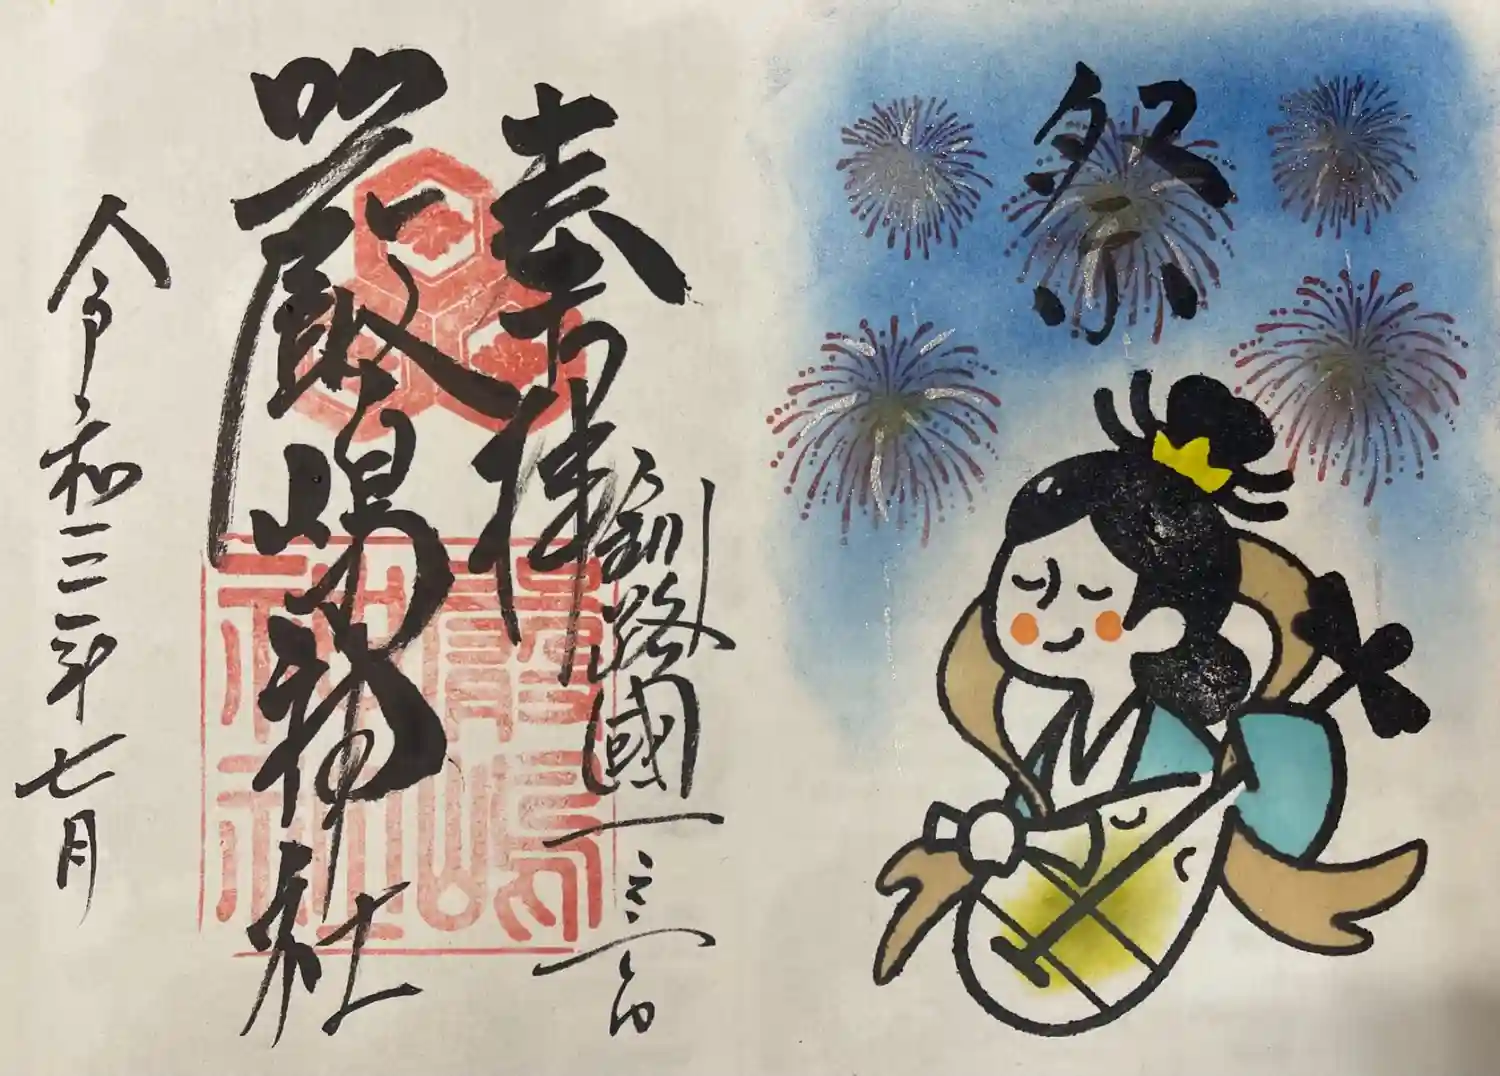 祭
釧路國一之宮
奉拝
嚴嶋神社
嚴嶋
神社
令和三年七月